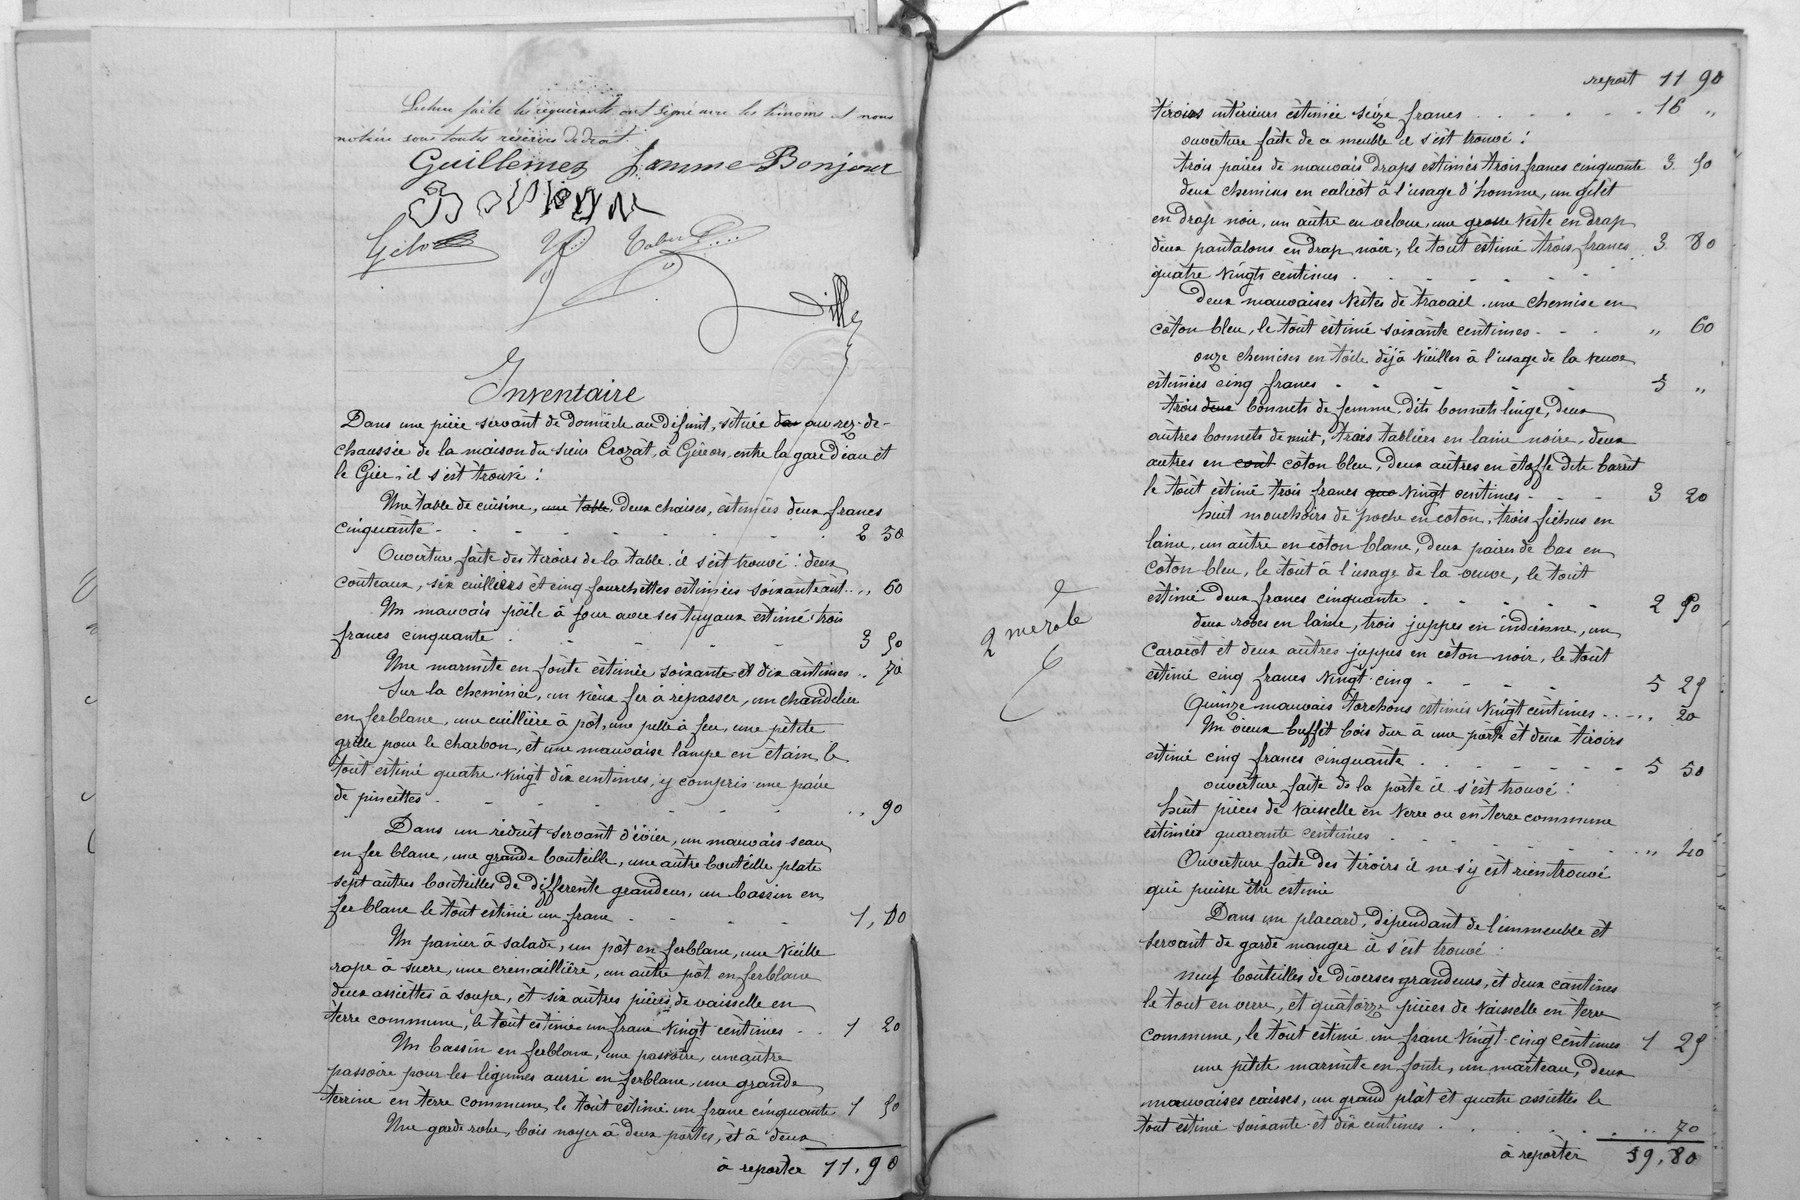 Lecture faite les requérants ont signé avec les témoins et nous
notaire sous toutes réserves de droit.
Guillemez Jamme-Bonjour
Inventaire
Dans une pièce servant de domicile au défunt, située dans au rez-de-
chaussée de la maison du sieur Crozat, à Givors, entre la gare d'eau et
le Gier, il s'est trouvé :
Une table de cuisine, une table, deux chaises, estimées deux francs
cinquante - 2 50
Ouverture faite des tiroirs de la table il s'est trouvé : deux
couteaux, six cuillères et cinq fourchettes estimées soixante cent. ,, 60
Un mauvais poêle à four avec ses tuyaux estimé trois
francs cinquante 3 50
Une marmite en fonte estimée soixante et dix centimes .. 70
Sur la cheminée, un vieux fer à repasser, un chandelier
en ferblanc, une cuillière à pot, une pelle à feu, une petite
grille pour le charbon, et une mauvaise lampe en étain le
tout estimé quatre vingt dix centimes, y compris une paire
de pincettes .. 90
Dans un réduit servant d'évier, un mauvais seau
en fer blanc, une grande bouteille, une autre bouteille plate
sept autres bouteilles de différente grandeur, un bassin en
fer blanc le tout estimé un franc 1, 00
Un panier à salade, un pot en ferblanc, une vieille
rape à sucre, une cremaillière, un autre pot en ferblanc
deux assiettes à soupe, et six autres pièces de vaisselle en
terre commune, le tout estimé un franc vingt centimes 1 20
Un bassin en ferblanc, une passoire, une autre
passoire pour les légumes aussi en ferblanc, une grande
terrine en terre commune, le tout estimé un franc cinquante 1 50
Une garde robe, bois noyer à deux portes, et à deux
à reporter 11,90
report 11 90
tiroirs intérieurs estimée seize francs 16 ,,
ouverture faite de ce meuble il s'est trouvé :
trois paires de mauvais draps estimés trois francs cinquante 3 50
deux chemises en calicot à l'usage d'homme, un gilet
en drap noir, un autre en velour, une grosse veste en drap
deux pantalons en drap noir, le tout estimé trois francs 3 80
quatre vingts centimes
Deux mauvaises vestes de travail, une chemise en
coton bleu, le tout estimé soixante centimes ,, 60
onze chemises en toile déjà vieilles à l'usage de la veuve
estimées cinq francs 5 ,,
trois deux bonnets de femme, dits bonnets linge, deux
autres bonnets de nuit, trois tabliers en laine noire, deux
autres en cout coton bleu, deux autres en étoffe dite barrèt
le tout estimé trois francs qua vingt centimes 3 20
huit mouchoirs de poche en coton, trois fichus en
laine, un autre en coton blanc, deux paires de bas en
coton bleu, le tout à l'usage de la veuve, le tout
estimé deux francs cinquante 2 50
2me role
deux robes en laine, trois juppes en indienne, un
caracot et deux autres juppes en coton noir, le tout
estimé cinq francs vingt cinq 5 25
Quinze mauvais torchons estimés vingt centimes .. 20
Un vieux buffet bois dur à une porte et deux tiroirs
estimé cinq francs cinquante 5 50
ouverture faite de la porte il s'est trouvé :
huit pièces de vaisselle en verre ou en terre commune
estimées quarante centimes ,, 40
Ouverture faite des tiroirs il ne s'y est rien trouvé
qui puisse être estimé
Dans un placard, dépendant de l'immeuble et
servant de garde manger il s'est trouvé :
neuf bouteilles de diverses grandeurs, et deux cantines
le tout en verre, et quatorze pièces de vaisselle en terre
commune, le tout estimé un franc vingt cinq centimes 1 25
une petite marmite en fonte, un marteau, deux
mauvaises caisses, un grand plat et quatre assiettes le
tout estimé soixante et dix centimes .. 70
à reporter 59,80